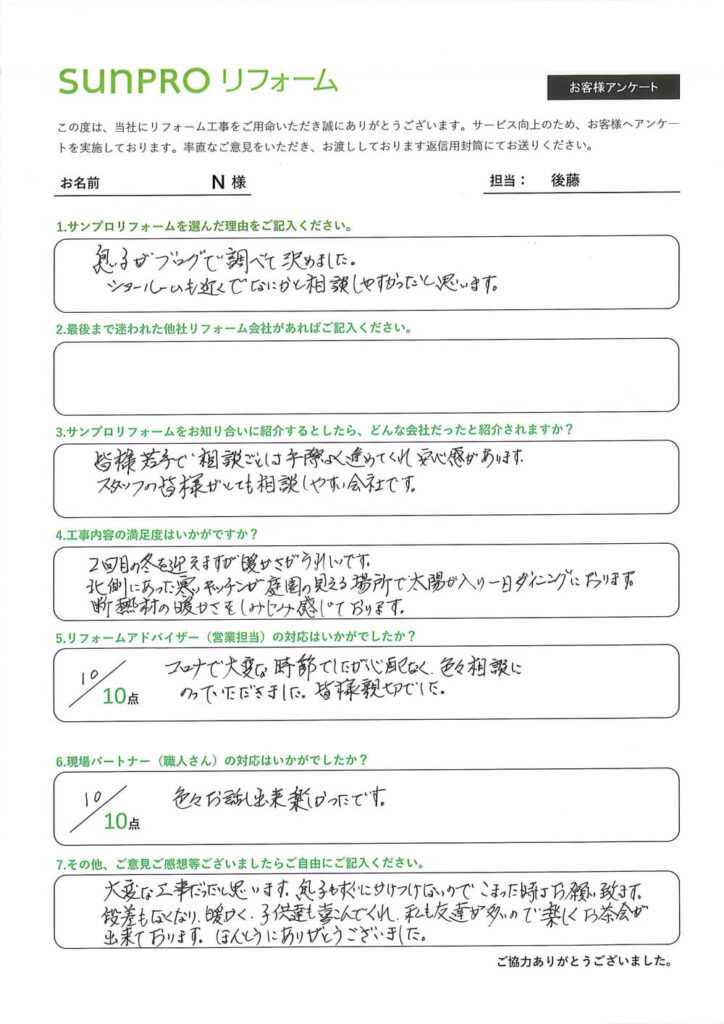 sunPRO リフォーム
お客様アンケート
この度は、当社にリフォーム工事をご用命いただき誠にありがとうございます。サービス向上のため、お客様へアンケー
トを実施しております。率直なご意見をいただき、お渡ししております返信用封筒にてお送りください。
お名前 N 様 担当： 後藤
1.サンプロリフォームを選んだ理由をご記入ください。
息子がブログで調べて決めました。
ショールームも近くでなにかと相談しやすかったと思います。
2.最後まで迷われた他社リフォーム会社があればご記入ください。
3.サンプロリフォームをお知り合いに紹介するとしたら、どんな会社だったと紹介されますか？
皆様若手で相談ごとは手際よく進めてくれ安心感があります.
スタッフの皆様がとても相談しやすい会社です。
4.工事内容の満足度はいかがですか？
2回目の冬を迎えますが暖かさがうれしいです。
北側にあった寒いキッチンが庭園の見える場所で太陽が入り一日ダイニングにおります。
断熱材の暖かさをしみじみ感じております。
5.リフォームアドバイザー（営業担当）の対応はいかがでしたか？
10/10点
コロナで大変な時節でしたが心配なく、色々相談に
のっていただきました。皆様親切でした。
6.現場パートナー（職人さん）の対応はいかがでしたか？
10/10点
色々お話し出来楽しかったです。
7.その他、ご意見ご感想等ございましたらご自由にご記入ください。
大変な工事だったと思います。息子もすぐにかけつけないのでこまった時はお願い致ます。
段差もなくなり、暖かく、子供達も喜こんでくれ、私も友達が多いので楽しくお茶会が
出来ております。ほんとうにありがとうございました。
ご協力ありがとうございました。